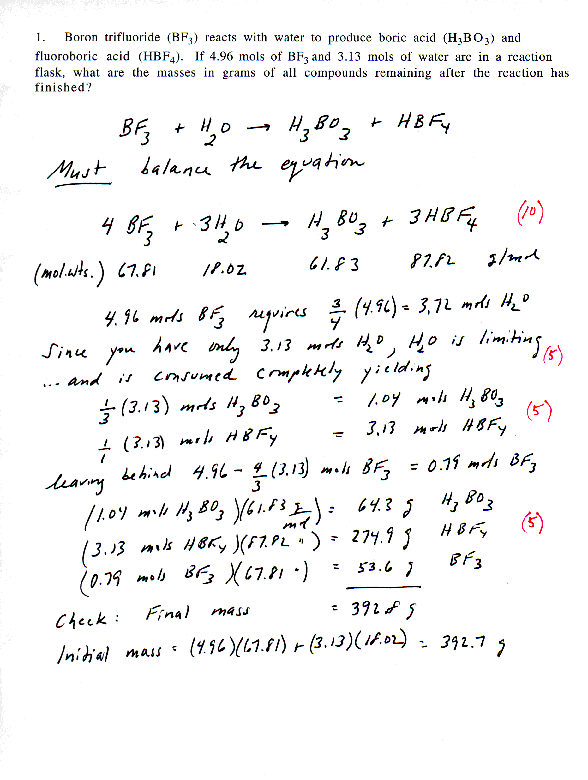 1. Boron trifluoride (BF₃) reacts with water to produce boric acid (H₃BO₃) and
fluoroboric acid (HBF₄). If 4.96 mols of BF₃ and 3.13 mols of water are in a reaction
flask, what are the masses in grams of all compounds remaining after the reaction has
finished?
BF₃ + H₂O → H₃BO₃ + HBF₄
Must balance the equation
4 BF₃ + 3H₂O → H₃BO₃ + 3HBF₄ (10)
(mol.wts.) 67.81 18.02 61.83 87.82 g/mol
4.96 mols BF₃ requires 3/4 (4.96) = 3.72 mols H₂O
Since you have only 3.13 mols H₂O, H₂O is limiting (5)
... and is consumed completely yielding
1/3 (3.13) mols H₃BO₃ = 1.04 mols H₃BO₃
1/1 (3.13) mols HBF₄ = 3.13 mols HBF₄ (5)
leaving behind 4.96 - 4/3 (3.13) mols BF₃ = 0.79 mols BF₃
(1.04 mols H₃BO₃)(61.83 g/mol) = 64.3 g H₃BO₃
(3.13 mols HBF₄)(87.82 ") = 274.9 g HBF₄ (5)
(0.79 mols BF₃)(67.81 ") = 53.6 g BF₃
Check: Final mass = 392.8 g
Initial mass = (4.96)(67.81) + (3.13)(18.02) = 392.7 g